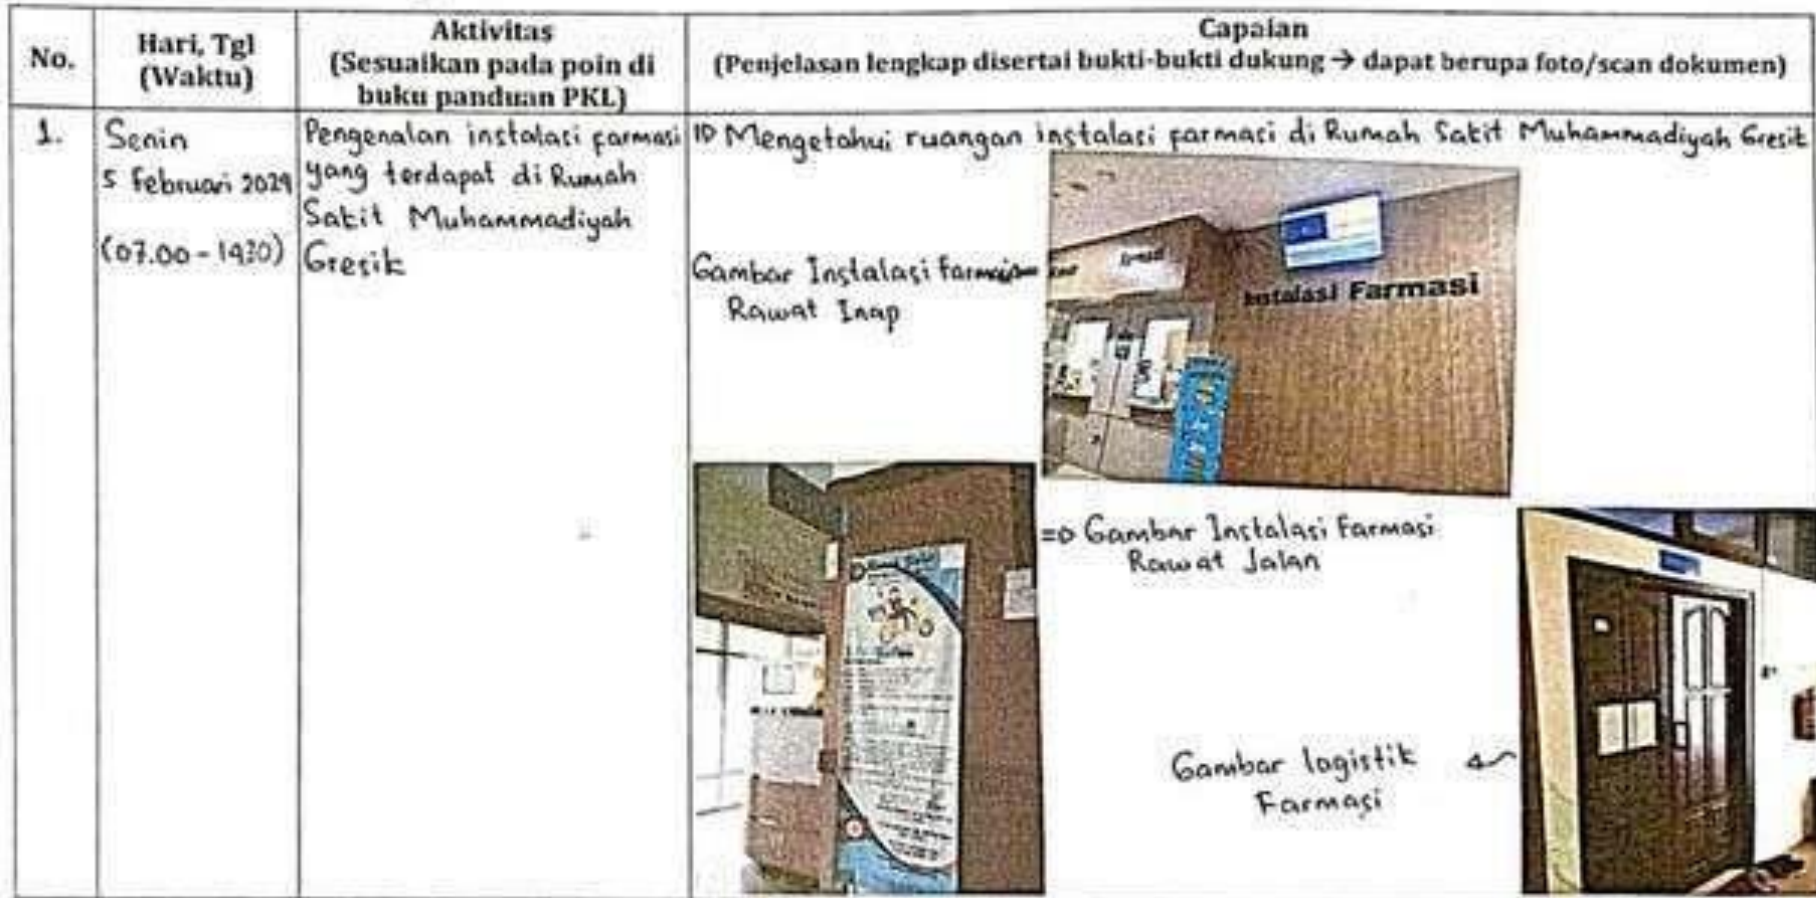 No.
Hari, Tgl
(Waktu)
Aktivitas
(Sesuaikan pada poin di
buku panduan PKL)
Capaian
(Penjelasan lengkap disertai bukti-bukti dukung → dapat berupa foto/scan dokumen)
1.
Senin
5 Februari 2024
(07.00 - 14.30)
Pengenalan instalasi farmasi
yang terdapat di Rumah
Sakit Muhammadiyah
Gresik
Mengetahui ruangan instalasi farmasi di Rumah Sakit Muhammadiyah Gresik
Gambar Instalasi Farmasi
Rawat Inap
Instalasi Farmasi
⇒ Gambar Instalasi Farmasi
Rawat Jalan
Gambar logistik
Farmasi